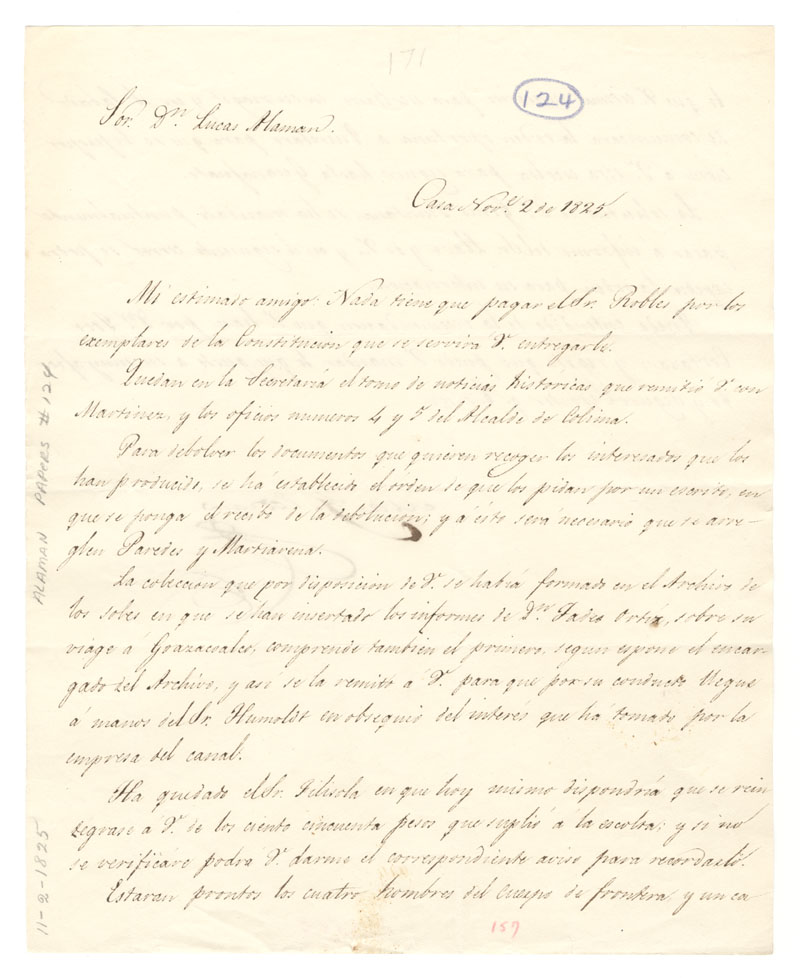 171
124
Sor. Dn. Lucas Alaman.
Casa Nove. 2 de 1825.
Mi estimado amigo: Nada tiene que pagar el Sr. Robles por los
exemplares de la Constitucion que se servirá V. entregarle.
Quedan en la Secretaría el tomo de noticias historicas que remitió V. con
Martinez, y los oficios numeros 4 y 5 del Alcalde de Colima.
Para debolver los documentos que quieren recoger los interesados que los
han producido, se há establecido el orden de que los pidan por un escrito, en
que se ponga el recibo de la debolucion; y á esto será necesario que se arre-
glen Paredes y Martiarena.
La coleccion que por disposicion de V. se había formado en el Archivo de
los sobes en que se han insertado los informes de Dn. Tadeo Ortiz, sobre su
viage á Goazacualco, comprende tambien el primero, segun espone el encar-
gado del Archivo, y así se la remito á V. para que por su conducto llegue
á manos del Sr. Humoldt en obsequio del interés que há tomado por la
empresa del canal.
Ha quedado el Sr. Filisola en que hoy mismo dispondría que se rein
tegrase a V. de los ciento cincuenta pesos que suplió á la escolta; y si no
se verificáre podrá V. darme el correspondiente aviso para recordarselo.
Estarán prontos los cuatro hombres del cuerpo de frontera, y un ca
157
ALAMAN PAPERS # 124
11-2-1825